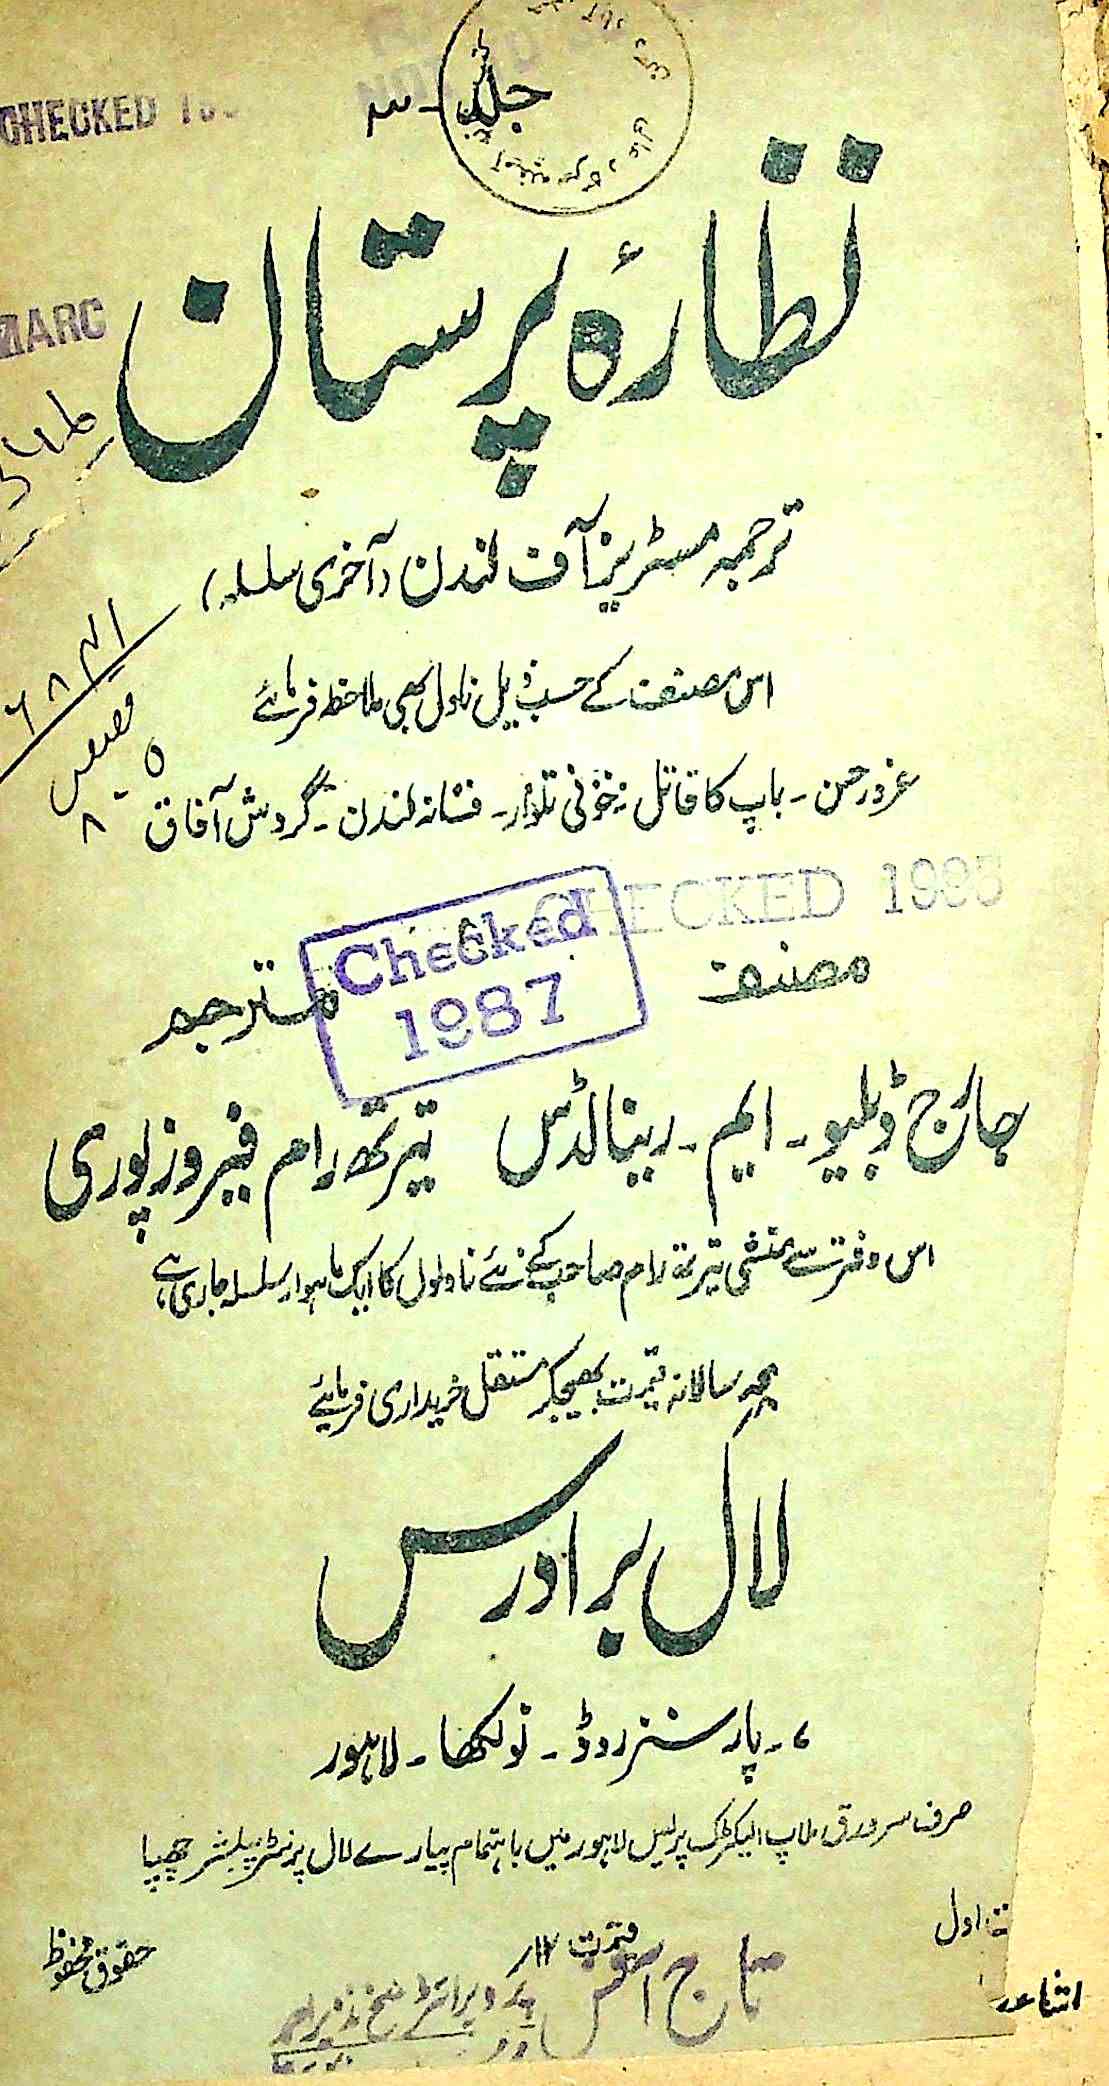 جلد - ۳
CHECKED
نظارۂ پرستان
ARC
ترجمہ مسٹریز آف لندن (آخری سلسلہ)
اس مصنف کے حسب ذیل ناول بھی ملاحظہ فرمائے
غرور حسن - باپ کا قاتل - خونی تلوار - فسانہ لندن - گردش آفاق
CHECKED 1995
Checked
1987
مصنف
مترجم
جارج ڈبلیو - ایم - رینالڈس
تیرتھ رام فیروزپوری
اس دفتر سے منشی تیرتھ رام صاحب کے نئے ناولوں کا ایک ماہوار سلسلہ جاری ہے
سالانہ قیمت بھیجکر مستقل خریداری فرمایئے
لال برادرس
۷ - پارسنز روڈ - نولکھا - لاہور
صرف سرورق ملاپ الیکٹرک پریس لاہور میں باہتمام پیارے لال پرنٹر پبلشر چھپا
اشاعت اول
قیمت ۱۲/
حقوق محفوظ
تاج آفس